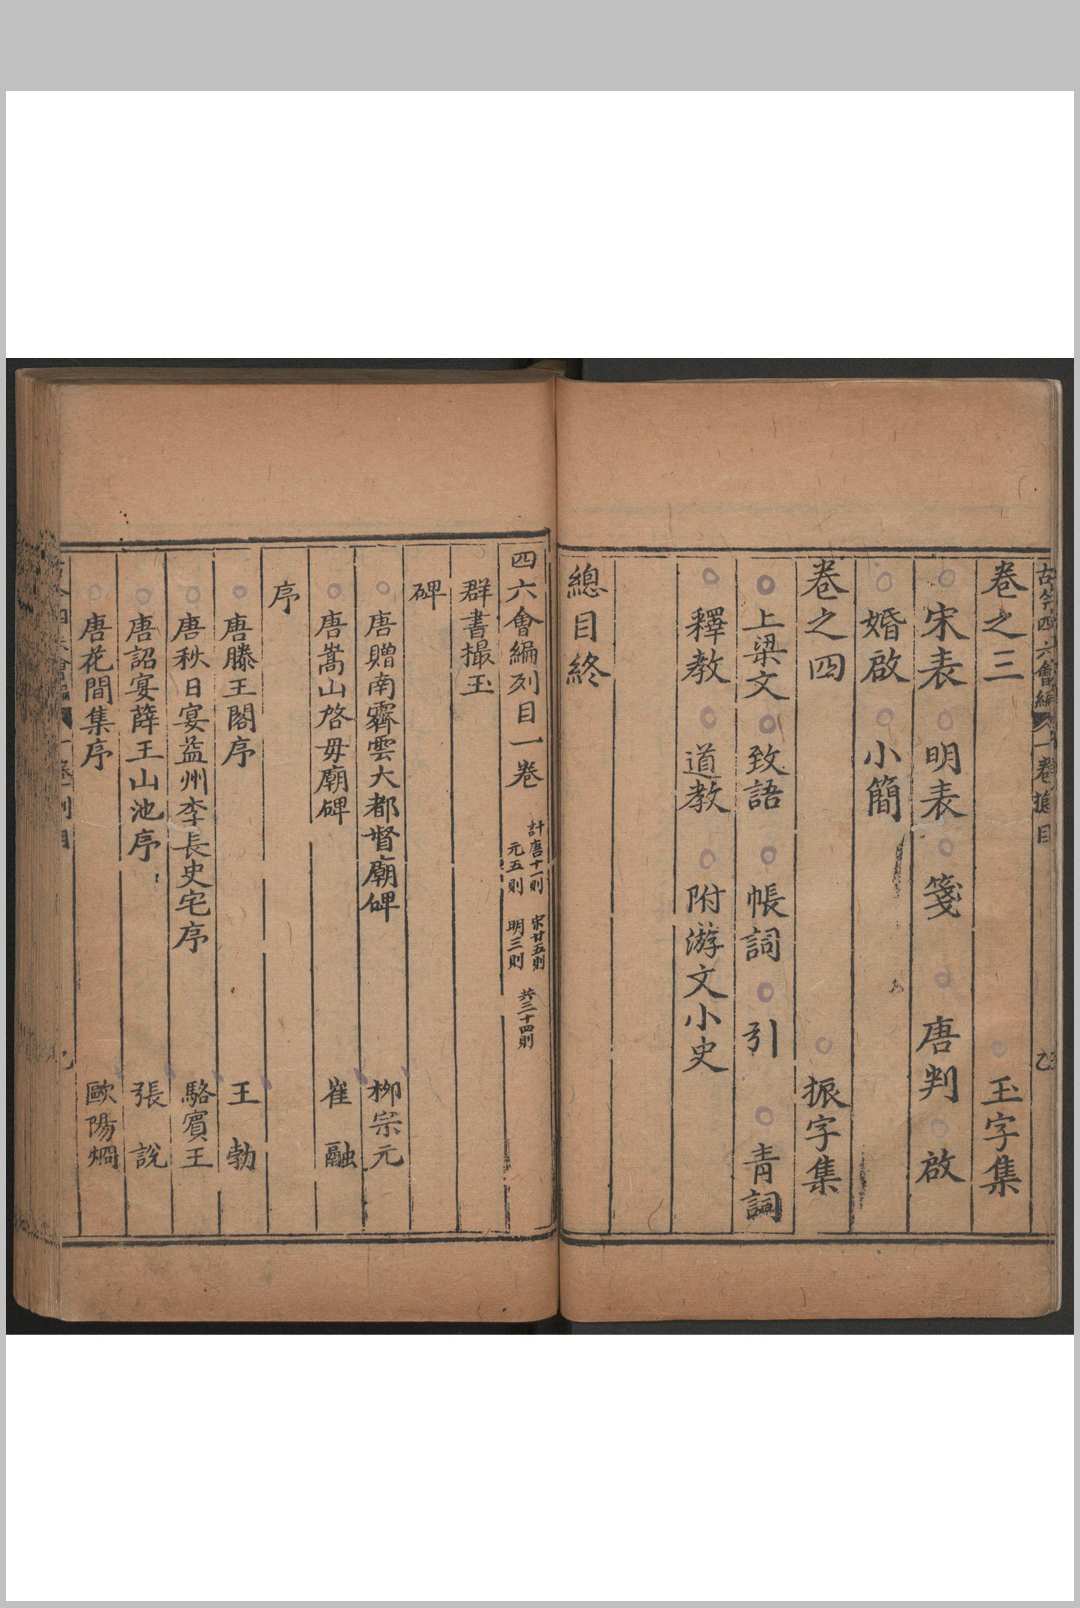 古今四六會編 一卷 摠目
卷之三 玉字集
宋表 明表 箋 唐判 啟
婚啟 小簡
卷之四 振字集
上梁文 致語 帳詞 引 青詞
釋教 道教 附游文小史
總目終
四六會編列目一卷 計唐十一則 宋廿五則 元五則 明三則 共三十四則
群書撮玉
碑
唐贈南霽雲大都督廟碑 柳宗元
唐嵩山啓母廟碑 崔融
序
唐滕王閣序 王勃
唐秋日宴益州李長史宅序 駱賓王
唐詔宴薛王山池序 張說
唐花間集序 歐陽烱